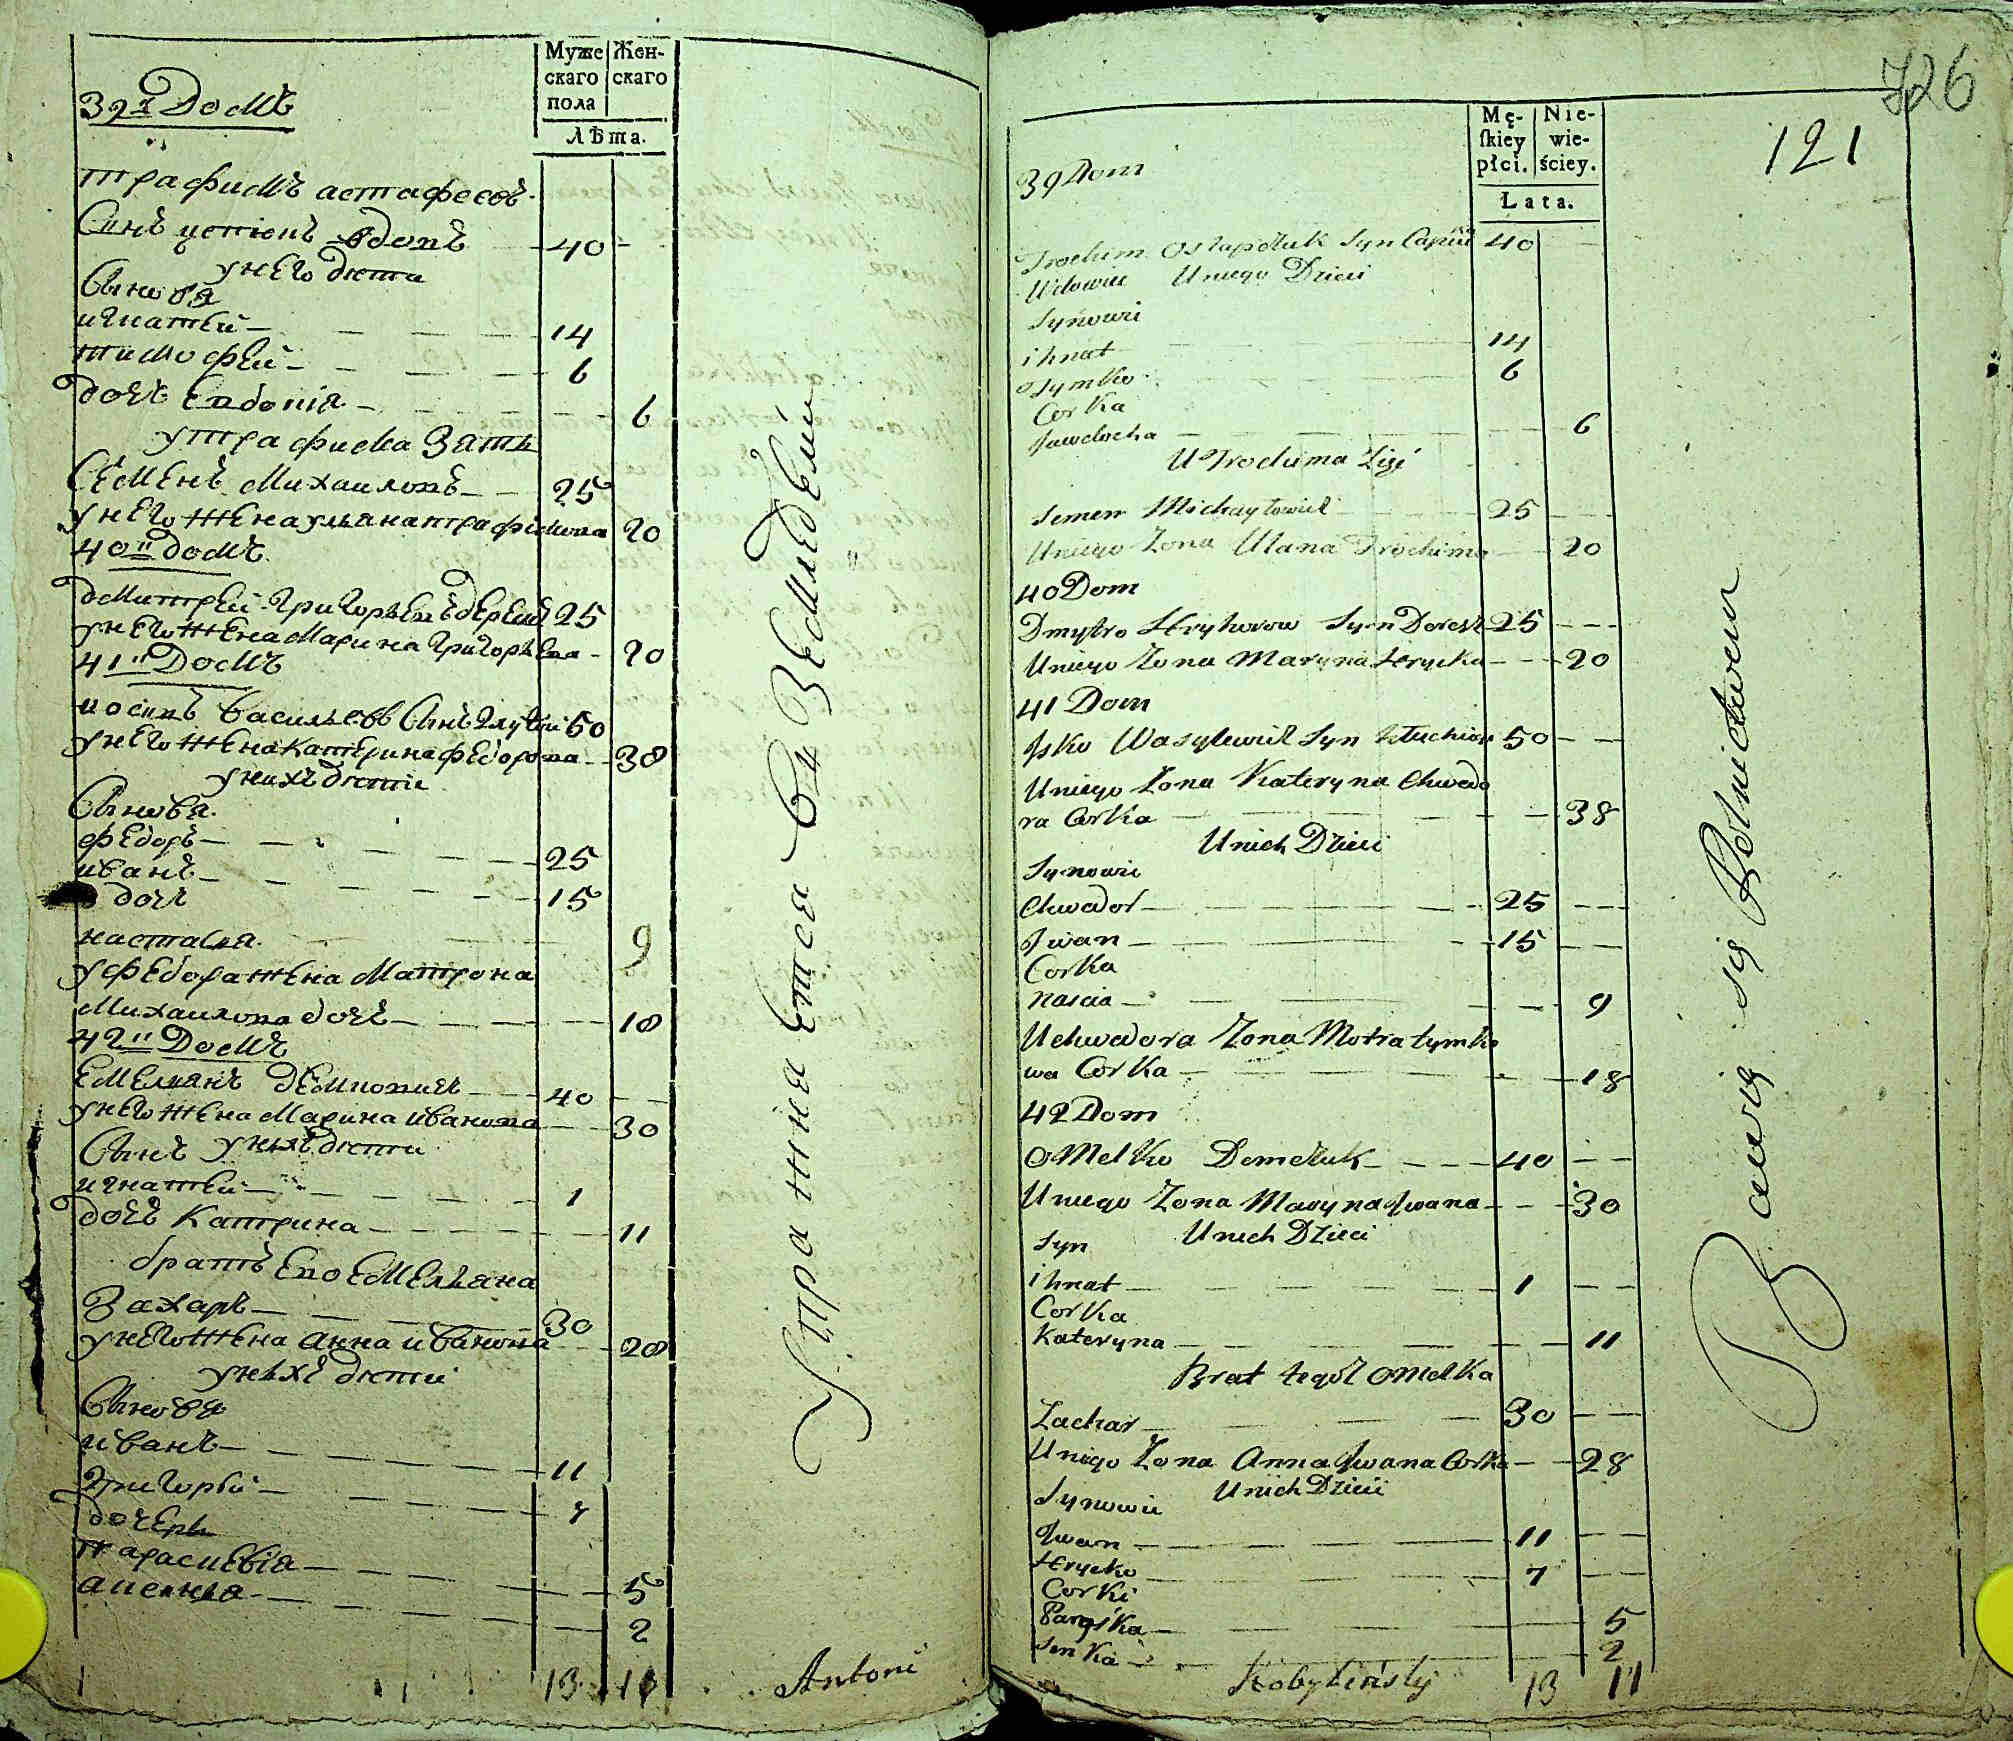 Муже
скаго
пола
Жен-
скаго
Лѣта.
39й Домъ
трафимъ астафеевъ
Синъ вдопъ 40
унего дѣти
Сыновя
игнатѣй 14
тимофѣй 6
дочь Евдопія 6
утрафима Зять
Семенъ Михаиловъ 25
унего жена ульяна трафимова 20
40й домъ
дмитрей Григорьевъ 25
унего жена Марина Григорьева 20
41й Домъ
иосипъ васильевъ Синъ 50
унего жена катерина федорова 38
унихъ дѣти
Сыновя
федоръ 25
иванъ 15
дочь
настасья 9
уфедора жена Матрона
Михаилова дочь 18
42й Домъ
Емельянъ 40
унего жена Марина иванова 30
Сынъ унихъ дѣти
игнатѣй 1
дочь Катрина 11
братъ Ево Емельяна
Захаръ 30
унего жена анна иванова 28
унихъ дѣти
Сыновя
иванъ 11
Григорѣй 7
дочерь
парасковія 5
2
13 11
Упражняется въ Земледелiи
Antoni
726
121
Mę-
skiey
płci.
Nie-
wie-
ściey.
Lata.
39 Dom
Trochim Ostapczuk Syn 40
Wdowiec Uniego Dzieci
Synowie
ihnat 14
Tymko 6
Corka
Jawdocha 6
U Trochima Zięć
Semen Michayłowicz 25
Uniego Zona Ulana Trochima 20
40 Dom
Dmytro Hryhorow Syn 25
Uniego Zona Maryna Hrycka 20
41 Dom
Jsko Wasylewicz Syn 50
Uniego Zona Kateryna Chwedo
ra Corka 38
Unich Dzieci
Synowie
Chwedor 25
Jwan 15
Corka
Nascia 9
Uchwedora Zona Motra tymko
wa Corka 18
42 Dom
Omelko Demczuk 40
Uniego Zona Maryna Jwana 30
Syn Unich Dzieci
ihnat 1
Corka
Kateryna 11
Brat tegoż Omelka
Zachar 30
Uniego Zona Anna Jwana Corka 28
Synowie Unich Dzieci
Jwan 11
Hrycko 7
Corki
Paraska 5
2
Kobyliński 13 11
Bawią się Rolnictwem